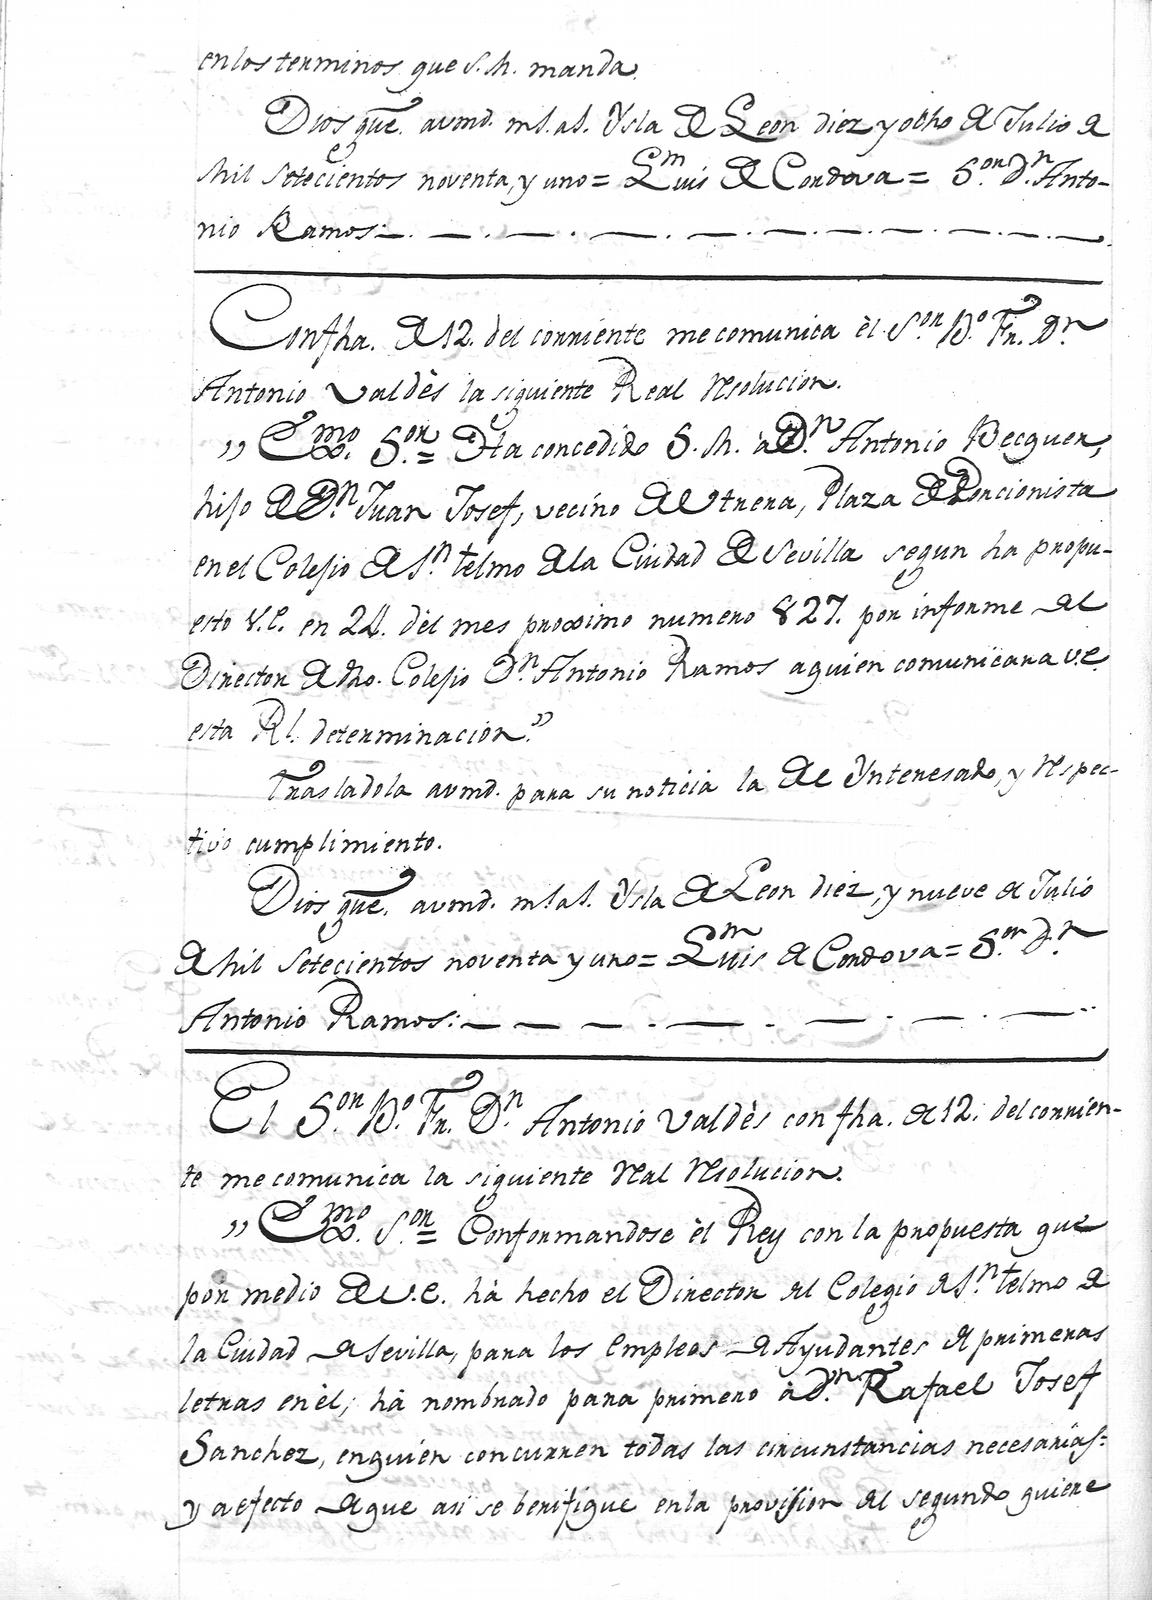 en los terminos que S.M. manda.
Dios gue. avmd. ms. as. Ysla de Leon diez y ocho de Julio de
Mil Setecientos noventa, y uno = Luis de Cordova = S.or D.n Anto-
nio Ramos:
Con fha. de 12. del corriente me comunica èl S.or B.o Fr. D.n
Antonio Valdès la siguiente Real resolucion.
„ Exmo. S.or = Ha concedido S.M. à D.n Antonio Becquer,
hijo de D.n Juan Josef, vecino de Utrera, Plaza de Porcionista
en el Colejio de S.n telmo de la Ciudad de Sevilla segun ha propu-
esto V.E. en 24. del mes proximo numero 827. por informe del
Director de dho. Colejio D.n Antonio Ramos aquien comunicara V.E.
esta Rl. determinacion."
Trasladola avmd. para su noticia la del Ynteresado, y respec-
tivo cumplimiento.
Dios gue. avmd. ms. as. Ysla de Leon diez, y nueve de Julio
de Mil Setecientos noventa y uno = Luis de Cordova = S.or D.n
Antonio Ramos:
El S.or B.o Fr. D.n Antonio Valdès con fha. de 12. del corrien-
te me comunica la siguiente real resolucion.
„ Exmo. S.or = Conformandose èl Rey con la propuesta que
por medio de V.E. hà hecho el Director del Colegio de S.n telmo de
la Ciudad de Sevilla, para los Empleos de Ayudantes de primeras
letras en èl; hà nombrado para primero à D.n Rafael Josef
Sanchez, enquien concurren todas las circunstancias necesarias:
y aefecto de que asi se berifique enla provision del segundo quiere